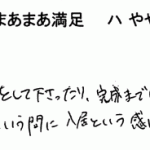 まあまあ満足　ハ やや
をして下さったり、完成まで
いう間に 入居という 感